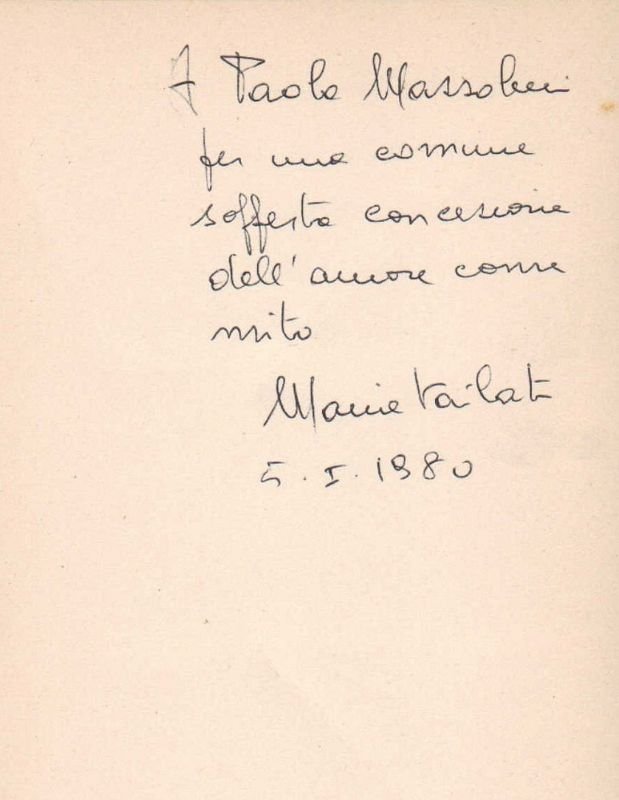 A Paolo Massobrio
per una comune
sofferta concezione
dell'amore come
mito
Maria Vailati
5.I.1980